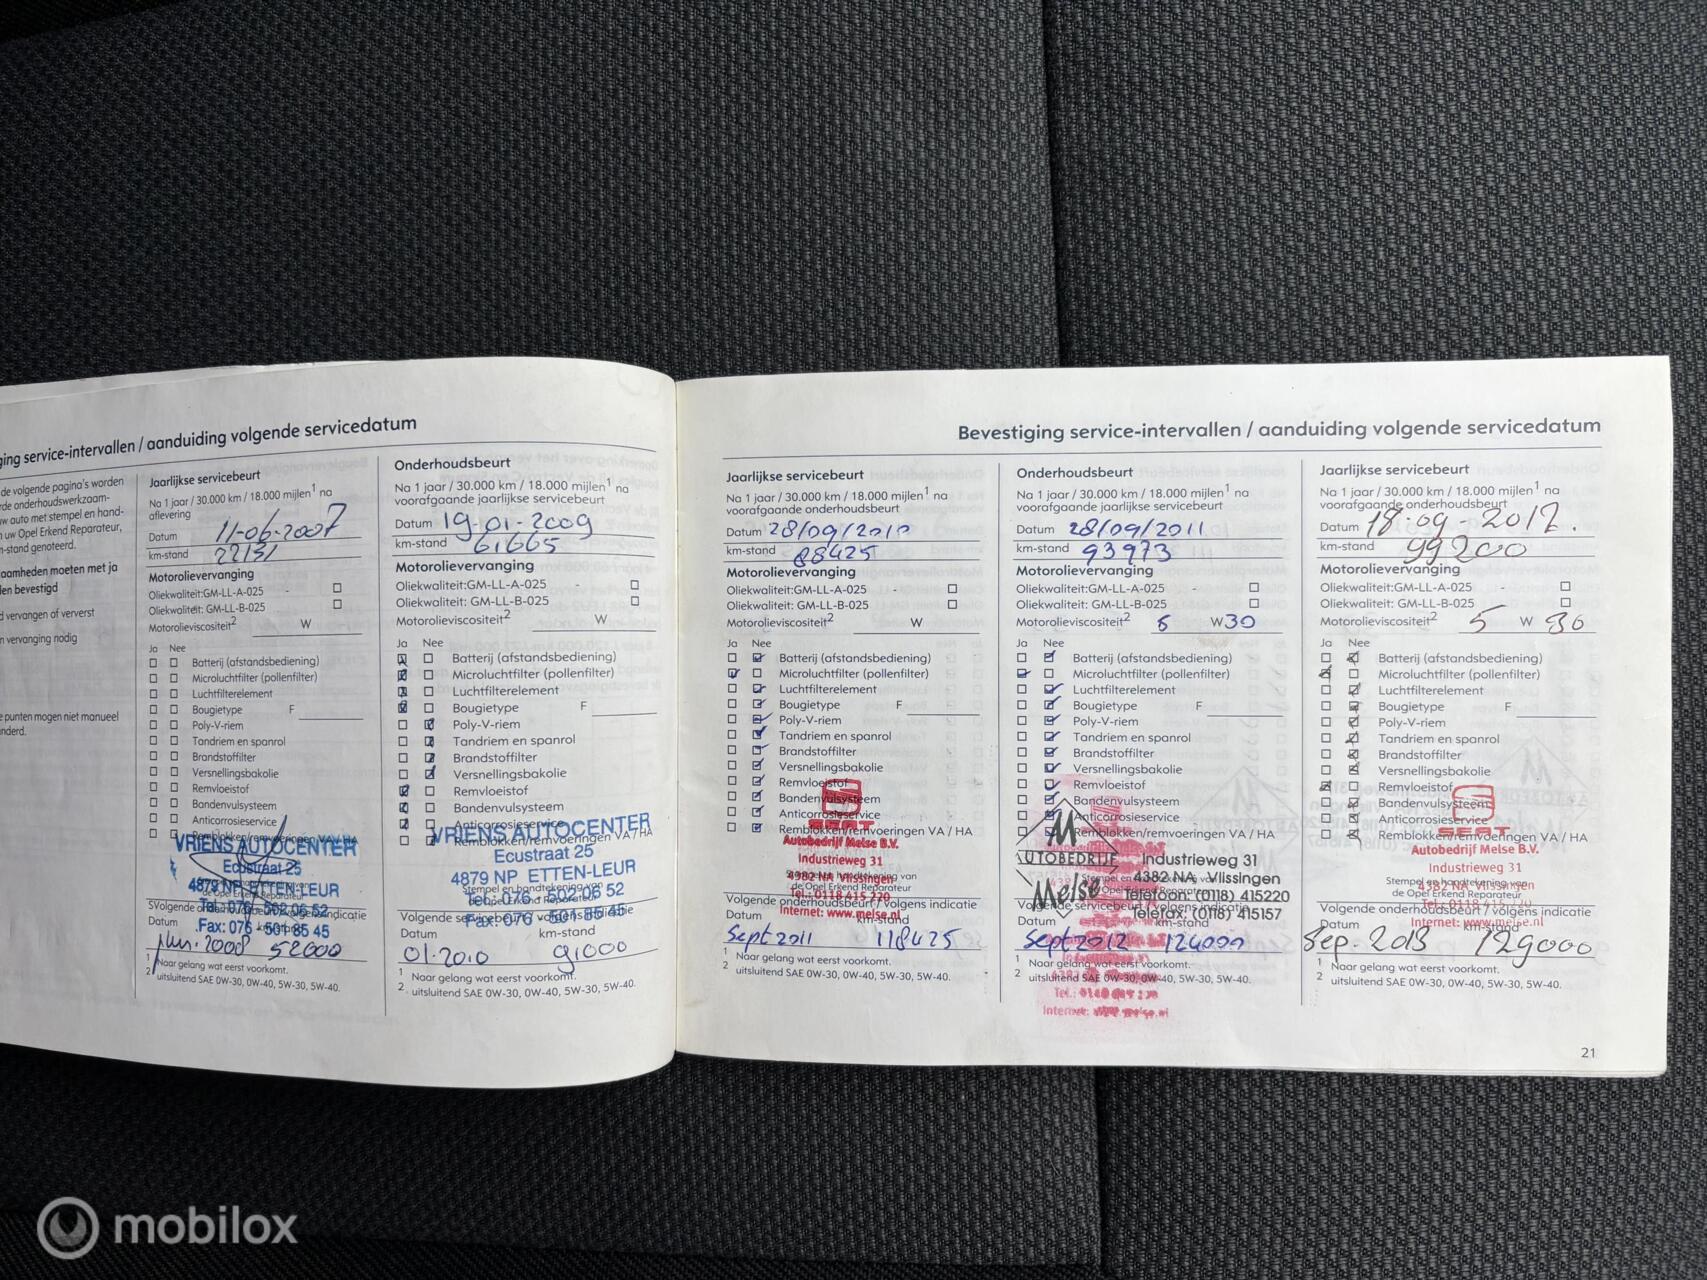 ging service-intervallen / aanduiding volgende servicedatum
de volgende pagina's worden
rde onderhoudswerkzaam-
uw auto met stempel en hand-
n uw Opel Erkend Reparateur,
n-stand genoteerd.
aamheden moeten met ja
den bevestigd
d vervangen of ververst
n vervanging nodig
e punten mogen niet manueel
nderd.
Jaarlijkse servicebeurt
Na 1 jaar / 30.000 km / 18.000 mijlen1 na
aflevering
Datum 11-06-2007
km-stand 22131
Motorolievervanging
Oliekwaliteit:GM-LL-A-025 -
Oliekwaliteit: GM-LL-B-025
Motorolieviscositeit2 W
Ja Nee
Batterij (afstandsbediening)
Microluchtfilter (pollenfilter)
Luchtfilterelement
Bougietype F
Poly-V-riem
Tandriem en spanrol
Brandstoffilter
Versnellingsbakolie
Remvloeistof
Bandenvulsysteem
Anticorrosieservice
Remblokken/remvoeringen VA/HA
VRIENS AUTOCENTER
Ecustraat 25
4879 NP ETTEN-LEUR
de Opel Erkend Reparateur
Tel. 076 - 502 06 52
Fax: 076 501 85 45
Datum
2008 52000
1 Naar gelang wat eerst voorkomt.
2 uitsluitend SAE 0W-30, 0W-40, 5W-30, 5W-40.
Onderhoudsbeurt
Na 1 jaar / 30.000 km / 18.000 mijlen1 na
voorafgaande jaarlijkse servicebeurt
Datum 19-01-2009
km-stand 61.665
Motorolievervanging
Oliekwaliteit:GM-LL-A-025 -
Oliekwaliteit: GM-LL-B-025
Motorolieviscositeit2 W
Ja Nee
Batterij (afstandsbediening)
Microluchtfilter (pollenfilter)
Luchtfilterelement
Bougietype F
Poly-V-riem
Tandriem en spanrol
Brandstoffilter
Versnellingsbakolie
Remvloeistof
Bandenvulsysteem
Anticorrosieservice
Remblokken/remvoeringen VA / HA
VRIENS AUTOCENTER
Ecustraat 25
4879 NP ETTEN-LEUR
Stempel en handtekening van
de Opel Erkend Reparateur
Tel. 076 - 502 06 52
Fax: 076 501 85 45
Volgende servicebeurt / volgens indicatie
Datum km-stand
01-2010 91000
1 Naar gelang wat eerst voorkomt.
2 uitsluitend SAE 0W-30, 0W-40, 5W-30, 5W-40.
Bevestiging service-intervallen / aanduiding volgende servicedatum
Jaarlijkse servicebeurt
Na 1 jaar / 30.000 km / 18.000 mijlen1 na
voorafgaande onderhoudsbeurt
Datum 28/09/2010
km-stand 88425
Motorolievervanging
Oliekwaliteit:GM-LL-A-025 -
Oliekwaliteit: GM-LL-B-025
Motorolieviscositeit2 W
Ja Nee
Batterij (afstandsbediening)
Microluchtfilter (pollenfilter)
Luchtfilterelement
Bougietype F
Poly-V-riem
Tandriem en spanrol
Brandstoffilter
Versnellingsbakolie
Remvloeistof
Bandenvulsysteem
Anticorrosieservice
Remblokken/remvoeringen VA / HA
SEAT
Autobedrijf Melse B.V.
Industrieweg 31
4382 NA Vlissingen
Stempel en handtekening van
de Opel Erkend Reparateur
Tel.: 0118 415 220
Volgende onderhoudsbeurt / volgens indicatie
Internet: www.melse.nl
Datum km-stand
Sept 2011 118425
1 Naar gelang wat eerst voorkomt.
2 uitsluitend SAE 0W-30, 0W-40, 5W-30, 5W-40.
Onderhoudsbeurt
Na 1 jaar / 30.000 km / 18.000 mijlen1 na
voorafgaande jaarlijkse servicebeurt
Datum 28/09/2011
km-stand 93973
Motorolievervanging
Oliekwaliteit:GM-LL-A-025 -
Oliekwaliteit: GM-LL-B-025
Motorolieviscositeit2 5 W30
Ja Nee
Batterij (afstandsbediening)
Microluchtfilter (pollenfilter)
Luchtfilterelement
Bougietype F
Poly-V-riem
Tandriem en spanrol
Brandstoffilter
Versnellingsbakolie
Remvloeistof
Bandenvulsysteem
Anticorrosieservice
Remblokken/remvoeringen VA / HA
AUTOBEDRIJF
Melse
Industrieweg 31
4382 NA Vlissingen
Telefoon: (0118) 415220
Telefax: (0118) 415157
Volgende servicebeurt / volgens indicatie
Datum km-stand
Sept 2012 124000
1 Naar gelang wat eerst voorkomt.
2 uitsluitend SAE 0W-30, 0W-40, 5W-30, 5W-40.
Internet: www.melse.nl
Jaarlijkse servicebeurt
Na 1 jaar / 30.000 km / 18.000 mijlen1 na
voorafgaande onderhoudsbeurt
Datum 18-09-2012.
km-stand 99200
Motorolievervanging
Oliekwaliteit:GM-LL-A-025 -
Oliekwaliteit: GM-LL-B-025
Motorolieviscositeit2 5 W 30
Ja Nee
Batterij (afstandsbediening)
Microluchtfilter (pollenfilter)
Luchtfilterelement
Bougietype F
Poly-V-riem
Tandriem en spanrol
Brandstoffilter
Versnellingsbakolie
Remvloeistof
Bandenvulsysteem
Anticorrosieservice
Remblokken/remvoeringen VA / HA
SEAT
Autobedrijf Melse B.V.
Industrieweg 31
4382 NA Vlissingen
Stempel en handtekening van
de Opel Erkend Reparateur
Tel.: 0118 415 220
Volgende onderhoudsbeurt / volgens indicatie
Internet: www.melse.nl
Datum km-stand
Sep. 2013 129000
1 Naar gelang wat eerst voorkomt.
2 uitsluitend SAE 0W-30, 0W-40, 5W-30, 5W-40.
21
mobilox